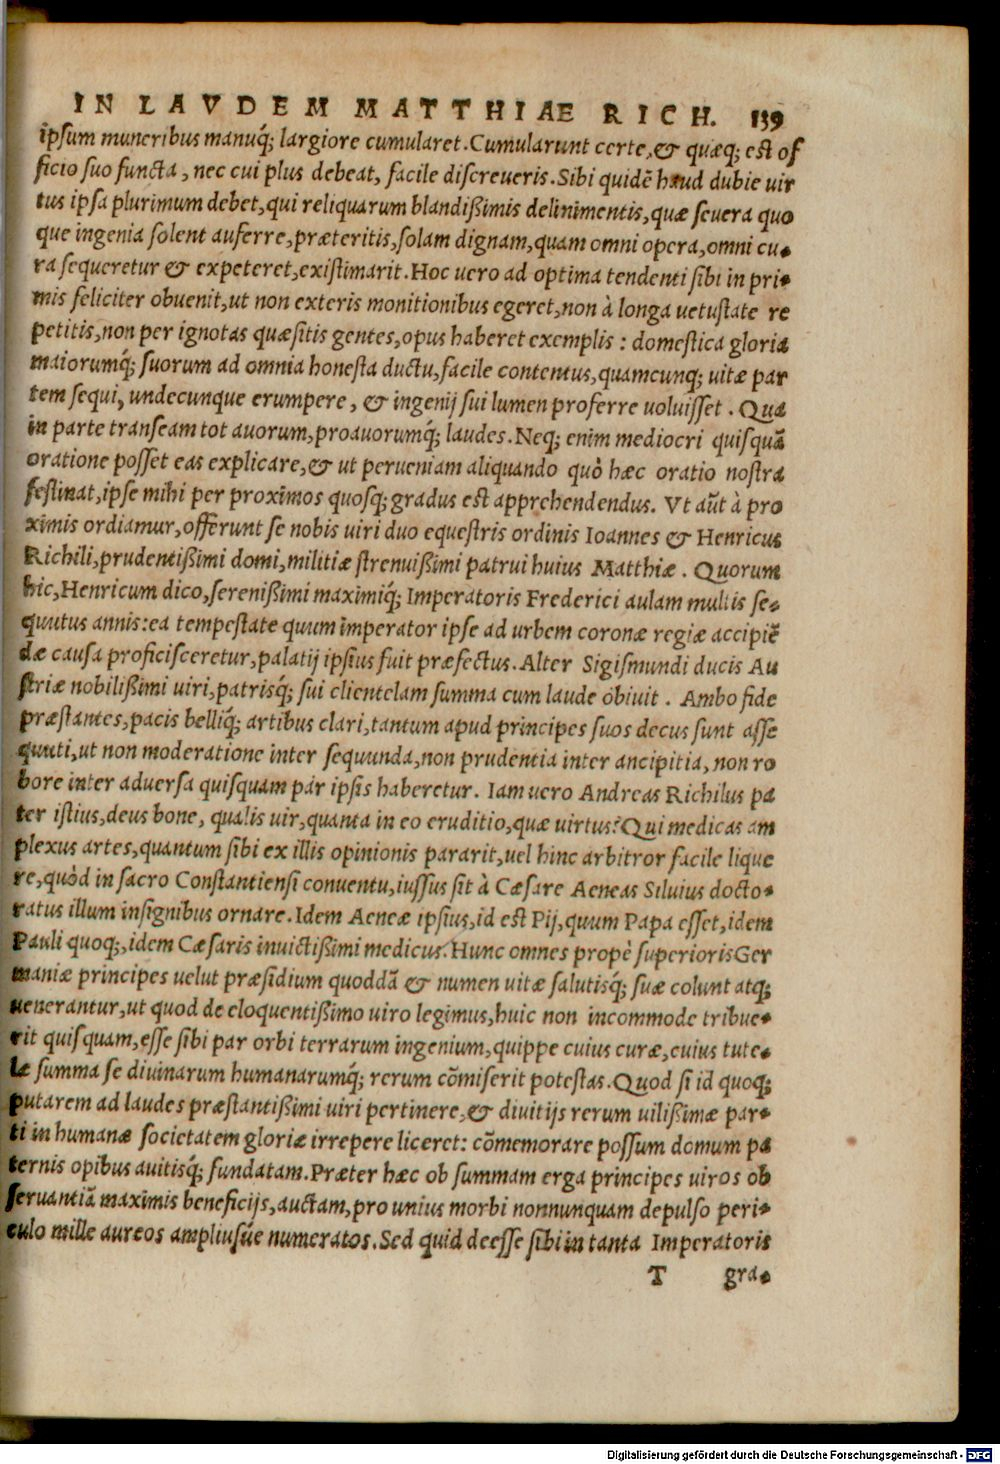 IN LAVDEM MATTHIAE RICH. 139
ipsum muneribus manuq́; largiore cumularet. Cumularunt certe, & quæq; est of
ficio suo functa, nec cui plus debeat, facile discreueris. Sibi quidē haud dubie uir
tus ipsa plurimum debet, qui reliquarum blandißimis delinimentis, quæ seuera quo
que ingenia solent auferre, præteritis, solam dignam, quam omni opera, omni cu-
ra sequeretur & expeteret, existimarit. Hoc uero ad optima tendenti sibi in pri-
mis feliciter obuenit, ut non exteris monitionibus egeret, non à longa uetustate re
petitis, non per ignotas quæsitis gentes, opus haberet exemplis : domestica gloria
maiorumq́; suorum ad omnia honesta ductu, facile contentus, quamcunq; uitæ par
tem sequi, undecunque erumpere, & ingenij sui lumen proferre uoluisset. Qua
in parte transeam tot auorum, proauorumq́; laudes. Neq; enim mediocri quisquā
oratione posset eas explicare, & ut perueniam aliquando quò hæc oratio nostra
festinat, ipse mihi per proximos quosq; gradus est apprehendendus. Vt aūt à pro
ximis ordiamur, offerunt se nobis uiri duo equestris ordinis Ioannes & Henricus
Richili, prudentißimi domi, militiæ strenuißimi patrui huius Matthiæ. Quorum
hic, Henricum dico, serenißimi maximiq́; Imperatoris Frederici aulam multis se-
quutus annis: ea tempestate quum imperator ipse ad urbem coronæ regiæ accipiē
dæ causa proficisceretur, palatij ipsius fuit præfectus. Alter Sigismundi ducis Au
striæ nobilißimi uiri, patrisq́; sui clientelam summa cum laude obiuit. Ambo fide
præstantes, pacis belliq́; artibus clari, tantum apud principes suos decus sunt asse
quuti, ut non moderatione inter sequunda, non prudentia inter ancipitia, non ro
bore inter aduersa quisquam par ipsis haberetur. Iam uero Andreas Richilus pa
ter istius, deus bone, qualis uir, quanta in eo eruditio, quæ uirtus? Qui medicas am
plexus artes, quantum sibi ex illis opinionis pararit, uel hinc arbitror facile lique
re, quòd in sacro Constantiensi conuentu, iussus sit à Cæsare Aeneas Siluius docto-
ratus illum insignibus ornare. Idem Aeneæ ipsius, id est Pij, quum Papa esset, idem
Pauli quoq;, idem Cæsaris inuictißimi medicus. Hunc omnes propè superioris Ger
maniæ principes uelut præsidium quoddā & numen uitæ salutisq́; suæ colunt atq;
uenerantur, ut quod de eloquentißimo uiro legimus, huic non incommode tribue-
rit quisquam, esse sibi par orbi terrarum ingenium, quippe cuius curæ, cuius tute-
læ summa se diuinarum humanarumq́; rerum cōmiserit potestas. Quod si id quoq;
putarem ad laudes præstantißimi uiri pertinere, & diuitijs rerum uilißimæ par-
ti in humanæ societatem gloriæ irrepere liceret: cōmemorare possum domum pa
ternis opibus auitisq́; fundatam. Præter hæc ob summam erga principes uiros ob
seruantiā maximis beneficijs, auctam, pro unius morbi nonnunquam depulso peri-
culo mille aureos ampliusúe numeratos. Sed quid deesse sibi in tanta Imperatoris
T gra-
Digitalisierung gefördert durch die Deutsche Forschungsgemeinschaft - DFG